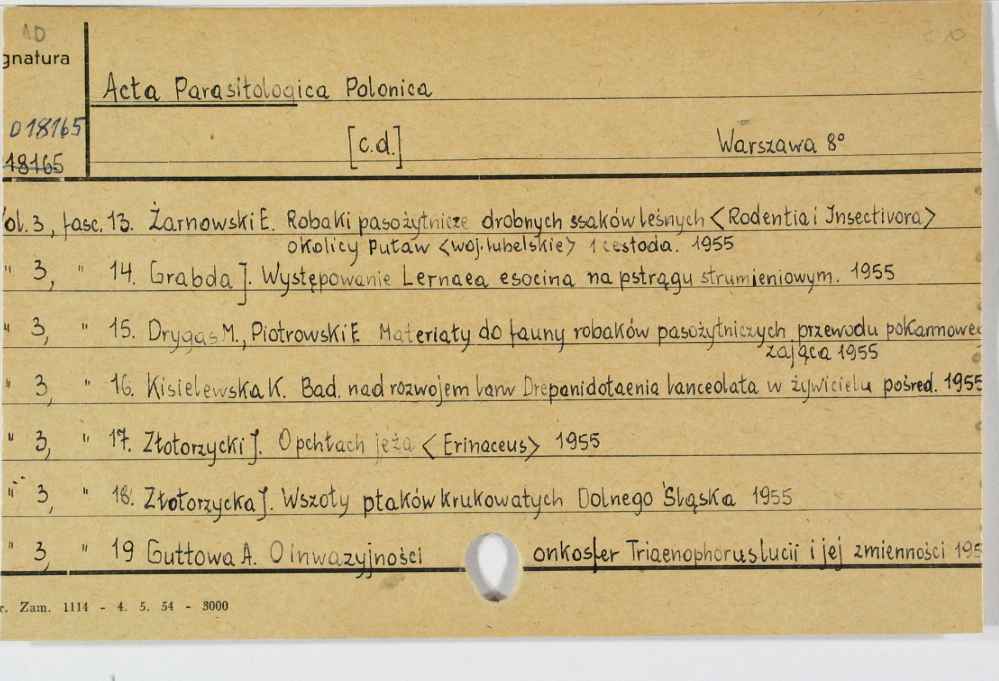 AD
gnatura
Acta Parasitologica Polonica
D 18165
[c.d.] Warszawa 8°
18165
ol. 3, fasc. 13. Żarnowski E. Robaki pasożytnicze drobnych ssaków leśnych <Rodentia i Insectivora>
okolicy Puław <woj. lubelskie> 1 cestoda. 1955
" 3, " 14. Grabda J. Występowanie Lernaea esocina na pstrągu strumieniowym. 1955
" 3, " 15. Drygas M., Piotrowski E Materiały do fauny robaków pasożytniczych przewodu pokarmowe
zająca 1955
" 3, " 16. Kisielewska K. Bad. nad rozwojem larw Drepanidotaenia lanceolata w żywicielu pośred. 1955
" 3, " 17. Złotorzycki J. O pchłach jeża <Erinaceus> 1955
" 3, " 18. Złotorzycka J. Wszoły ptaków krukowatych Dolnego Śląska 1955
" 3, " 19 Guttowa A. O inwazyjności onkosfer Triaenophorus lucii i jej zmienności 195
r. Zam. 1114 - 4. 5. 54 - 3000